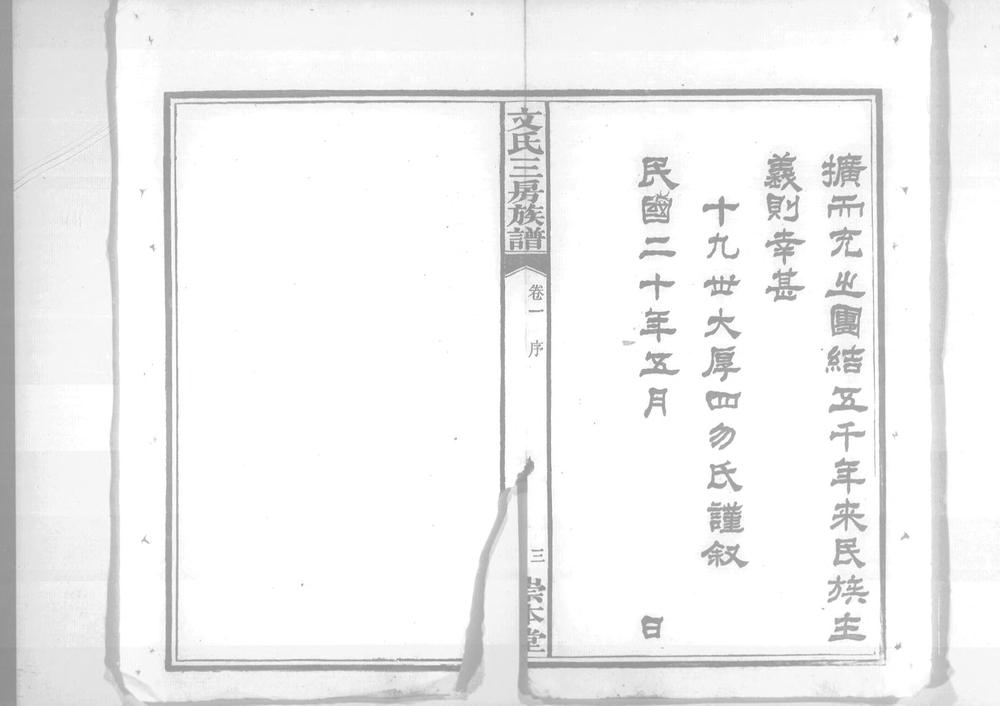 擴而充之團結五千年來民族主
義則幸甚
十九世大厚四勿氏謹敘
民國二十年五月 日
文氏三房族譜
卷一 序
三
崇本堂